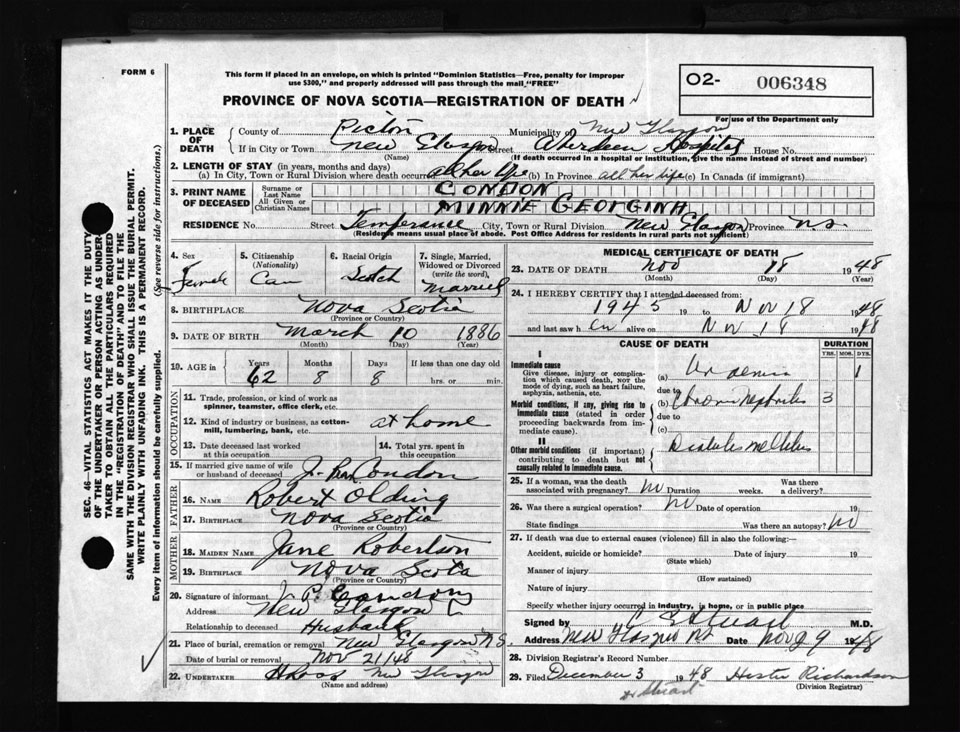 FORM 6
This form if placed in an envelope, on which is printed "Dominion Statistics—Free, penalty for improper
use $300," and properly addressed will pass through the mail, "FREE"
O2- 006348
For use of the Department only
PROVINCE OF NOVA SCOTIA—REGISTRATION OF DEATH
1. PLACE OF DEATH { County of Pictou Municipality of New Glasgow
If in City or Town New Glasgow Street Aberdeen Hospital House No.
(Name) (If death occurred in a hospital or institution, give the name instead of street and number)
2. LENGTH OF STAY (in years, months and days)
(a) In City, Town or Rural Division where death occurred all her life (b) In Province all her life (c) In Canada (if immigrant)
3. PRINT NAME OF DECEASED { Surname or Last Name CONDON
All Given or Christian Names MINNIE GEORGINA
RESIDENCE No. Street Temperance City, Town or Rural Division New Glasgow Province N.S.
(Residence means usual place of abode. Post Office Address for residents in rural parts not sufficient)
4. Sex Female
5. Citizenship (Nationality) Can
6. Racial Origin Scotch
7. Single, Married, Widowed or Divorced (write the word) Married
8. BIRTHPLACE Nova Scotia
(Province or Country)
9. DATE OF BIRTH March 10 1886
(Month) (Day) (Year)
10. AGE in { Years 62 Months 8 Days 8 If less than one day old
hrs. or min.
OCCUPATION
11. Trade, profession, or kind of work as
spinner, teamster, office clerk, etc.
12. Kind of industry or business, as cotton-
mill, lumbering, bank, etc. at home
13. Date deceased last worked
at this occupation
14. Total yrs. spent in
this occupation
15. If married give name of wife
or husband of deceased Condon
FATHER
16. NAME Robert Olding
17. BIRTHPLACE Nova Scotia
(Province or Country)
MOTHER
18. MAIDEN NAME Jane Robertson
19. BIRTHPLACE Nova Scotia
(Province or Country)
20. Signature of informant J. P. Condon
Address New Glasgow
Relationship to deceased Husband
21. Place of burial, cremation or removal New Glasgow N.S.
Date of burial or removal Nov 21/48
22. UNDERTAKER New Glasgow
(Name and address)
MEDICAL CERTIFICATE OF DEATH
23. DATE OF DEATH Nov 18 1948
(Month) (Day) (Year)
24. I HEREBY CERTIFY that I attended deceased from:
1945 19 to Nov 18 1948
and last saw h er alive on Nov 18 1948
CAUSE OF DEATH
DURATION
YRS. MOS. DYS.
I
Immediate cause
Give disease, injury or complica-
tion which caused death, not the
mode of dying, such as heart failure,
asphyxia, asthenia, etc.
(a) Uraemia 1
due to
Morbid conditions, if any, giving rise to
immediate cause (stated in order
proceeding backwards from im-
mediate cause).
(b) Chronic Nephritis 3
due to
(c)
II
Other morbid conditions (if important)
contributing to death but not
causally related to immediate cause.
Diabetes mellitus
25. If a woman, was the death
associated with pregnancy? No Duration weeks. Was there
a delivery?
26. Was there a surgical operation? No Date of operation 19
State findings Was there an autopsy? No
27. If death was due to external causes (violence) fill in also the following:
Accident, suicide or homicide? Date of injury 19
(State which)
Manner of injury
(How sustained)
Nature of injury
Specify whether injury occurred in industry, in home, or in public place
Signed by M.D.
Address New Glasgow NS Date Nov 29 1948
28. Division Registrar's Record Number
29. Filed December 3 1948 Hester Richardson
(Division Registrar)
Dr Stuart
SEC. 46—VITAL STATISTICS ACT MAKES IT THE DUTY
OF THE UNDERTAKER OR PERSON ACTING AS UNDER-
TAKER TO OBTAIN ALL THE PARTICULARS REQUIRED
IN THE "REGISTRATION OF DEATH" AND TO FILE THE
SAME WITH THE DIVISION REGISTRAR WHO SHALL ISSUE THE BURIAL PERMIT.
WRITE PLAINLY WITH UNFADING INK. THIS IS A PERMANENT RECORD.
Every item of information should be carefully supplied. (See reverse side for instructions.)